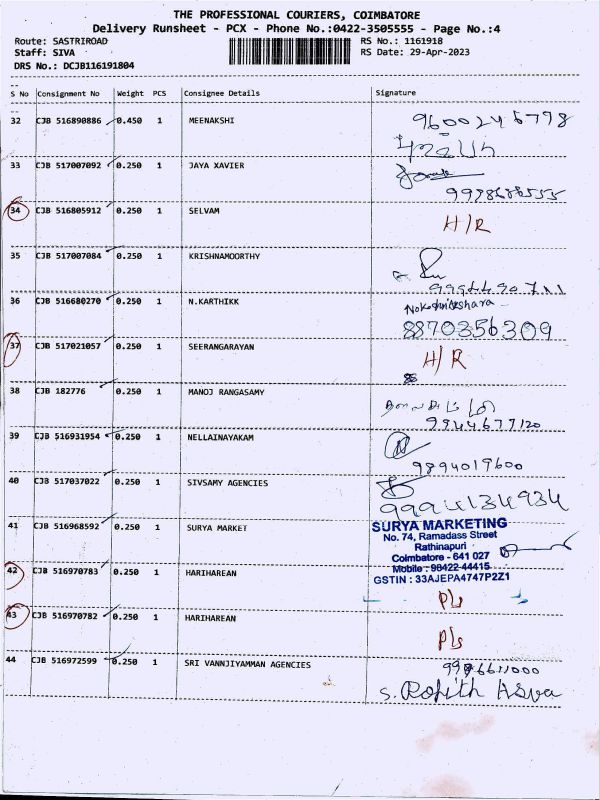 THE PROFESSIONAL COURIERS, COIMBATORE
Delivery Runsheet - PCX - Phone No.:0422-3505555 - Page No.:4
Route: SASTRIROAD RS No.: 1161918
Staff: SIVA RS Date: 29-Apr-2023
DRS No.: DCJB116191804
S No Consignment No Weight PCS Consignee Details Signature
32 CJB 516890886 0.450 1 MEENAKSHI
33 CJB 517007092 0.250 1 JAYA XAVIER
34 CJB 516805912 0.250 1 SELVAM H/R
35 CJB 517007084 0.250 1 KRISHNAMOORTHY
36 CJB 516680270 0.250 1 N.KARTHIKK
8870356309
37 CJB 517021057 0.250 1 SEERANGARAYAN H/R
38 CJB 182776 0.250 1 MANOJ RANGASAMY
9944677120
39 CJB 516931954 0.250 1 NELLAINAYAKAM
9894019600
40 CJB 517037022 0.250 1 SIVSAMY AGENCIES
9994134934
41 CJB 516968592 0.250 1 SURYA MARKET
SURYA MARKETING
No. 74, Ramadass Street
Rathinapuri
Coimbatore - 641 027
Mobile : 98422-44415
GSTIN : 33AJEPA4747P2Z1
42 CJB 516970783 0.250 1 HARIHAREAN P/s
43 CJB 516970782 0.250 1 HARIHAREAN P/s
44 CJB 516972599 0.250 1 SRI VANNJIYAMMAN AGENCIES
S. Rohith Asva